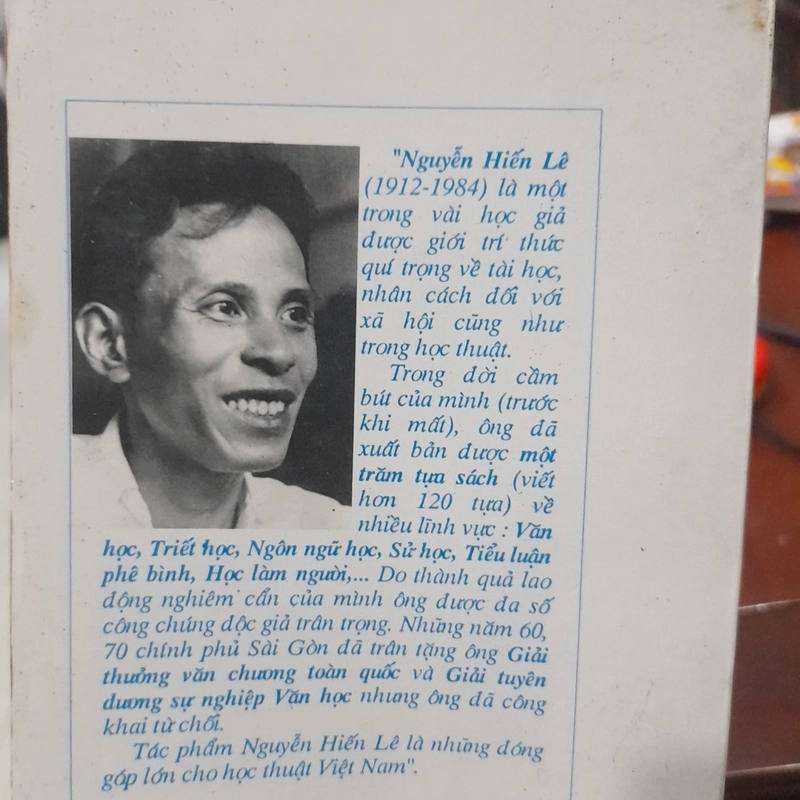 "Nguyễn Hiến Lê
(1912-1984) là một
trong vài học giả
được giới trí thức
quí trọng về tài học,
nhân cách đối với
xã hội cũng như
trong học thuật.
Trong đời cầm
bút của mình (trước
khi mất), ông đã
xuất bản được một
trăm tựa sách (viết
hơn 120 tựa) về
nhiều lĩnh vực : Văn
học, Triết học, Ngôn ngữ học, Sử học, Tiểu luận
phê bình, Học làm người,... Do thành quả lao
động nghiêm cẩn của mình ông được đa số
công chúng độc giả trân trọng. Những năm 60,
70 chính phủ Sài Gòn đã trân tặng ông Giải
thưởng văn chương toàn quốc và Giải tuyên
dương sự nghiệp Văn học nhưng ông đã công
khai từ chối.
Tác phẩm Nguyễn Hiến Lê là những đóng
góp lớn cho học thuật Việt Nam".